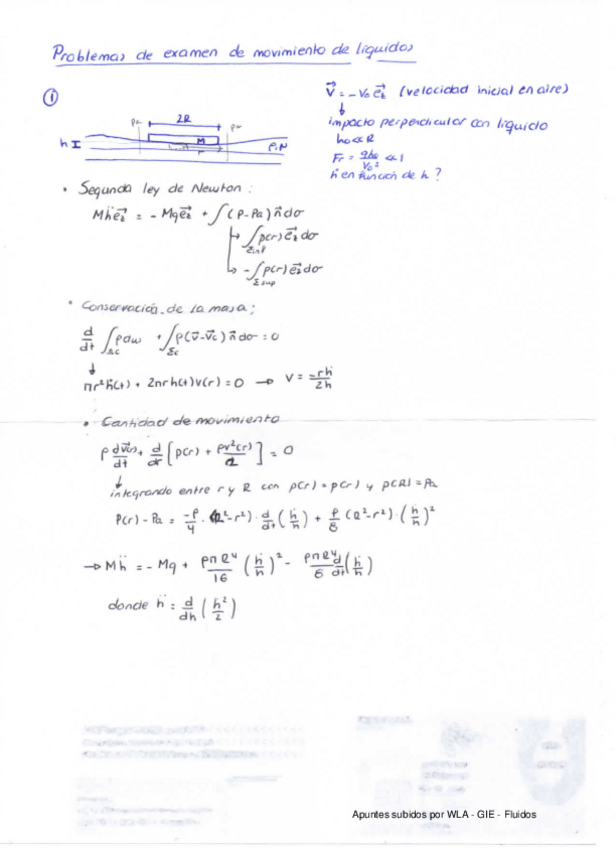 Problemas de examen de movimiento de liquidos
①
2R
Pa
Pa
M
h
r
ρ,μ
V⃗ = -V₀ e⃗z (velocidad inicial en aire)
↓
impacto perpendicular con liquido
h₀ << R
Fr = 2h₀/V₀² << 1
ḣ en función de h?
• Segunda ley de Newton:
Mḧe⃗z = -Mge⃗z + ∫(P-Pa)n⃗dσ
↳ ∫Σinf p(r)e⃗z dσ
↳ -∫Σsup p(r)e⃗z dσ
• Conservación de la masa:
d/dt ∫Ωc ρdω + ∫Σc ρ(v⃗-v⃗c)n⃗dσ = 0
↓
πr²ḣ(t) + 2πrh(t)v(r) = 0 → V = -rḣ/2h
• Cantidad de movimiento
ρ dv(r)/dt + d/dr [p(r) + ρv²(r)/2] = 0
↓
integrando entre r y R con p(r) = p(r) y p(R) = Pa
P(r) - Pa = -ρ/4 · (R²-r²) · d/dt (ḣ/h) + ρ/8 (R²-r²) · (ḣ/h)²
→ Mḧ = -Mg + ρπR⁴/16 (ḣ/h)² - ρπR⁴/8 d/dt (ḣ/h)
donde ḧ = d/dh (ḣ²/2)
Apuntes subidos por WLA - GIE - Fluidos